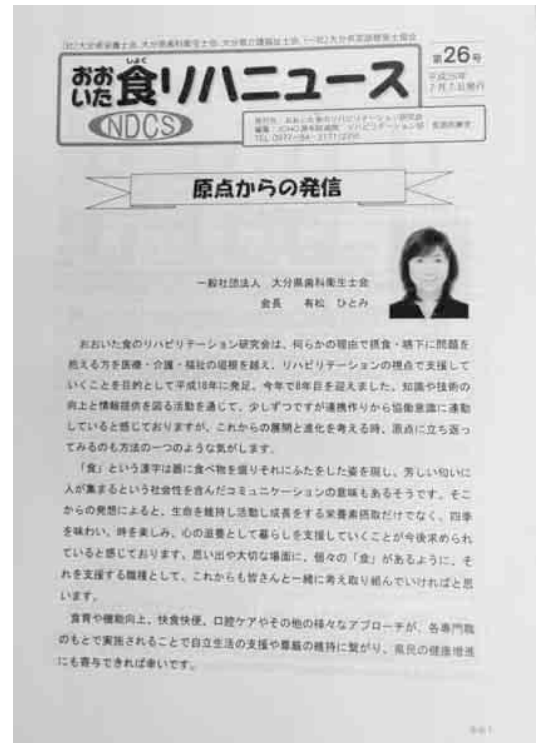 (社)大分県栄養士会、大分県歯科衛生士会、大分県介護福祉士会、(一社)大分県言語聴覚士協会
第26号
おおいた食リハニュース
しょく
平成26年
7月7日発行
NDCS
発行元:おおいた食のリハビリテーション研究会
TEL
原点からの発信
一般社団法人 大分県歯科衛生士会
会長 有松 ひとみ
おおいた食のリハビリテーション研究会は、何らかの理由で摂食・嚥下に問題を
抱える方を医療・介護・福祉の垣根を越え、リハビリテーションの視点で支援して
いくことを目的として平成18年に発足、今年で8年目を迎えました。知識や技術の
向上と情報提供を図る活動を通じて、少しずつですが連携作りから協働意識に連動
していると感じておりますが、これからの展開と進化を考える時、原点に立ち返っ
てみるのも方法の一つのような気がします。
「食」という漢字は器に食べ物を盛りそれにふたをした姿を現し、芳しい匂いに
人が集まるという社会性を含んだコミュニケーションの意味もあるそうです。そこ
からの発想によると、生命を維持し活動し成長をする栄養素摂取だけでなく、四季
を味わい、時を楽しみ、心の滋養として暮らしを支援していくことが今後求められ
ていると感じております。思い出や大切な場面に、個々の「食」があるように、そ
れを支援する職種として、これからも皆さんと一緒に考え取り組んでいければと思
います。
食育や機能向上、快食快便、口腔ケアやその他の様々なアプローチが、各専門職
のもとで実施されることで自立生活の支援や尊厳の維持に繋がり、県民の健康増進
にも寄与できれば幸いです。